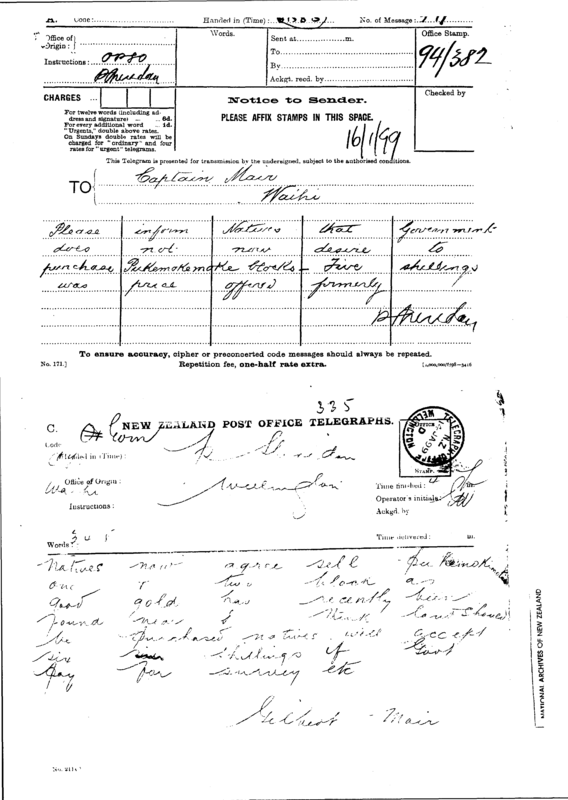 Code :
Handed in (Time) :
No. of Message :
Office of Origin :
Instructions : OPSO
P Sheridan
Words.
Sent at m.
To
By
Ackgt. recd. by
Office Stamp.
94/382
Checked by
CHARGES ...
For twelve words (including ad-
dress and signature) ... 6d.
For every additional word ... 1d.
"Urgents," double above rates.
On Sundays double rates will be
charged for "ordinary" and four
rates for "urgent" telegrams.
Notice to Sender.
PLEASE AFFIX STAMPS IN THIS SPACE.
16/1/99
This Telegram is presented for transmission by the undersigned, subject to the authorised conditions.
TO Captain Mair
Waihi
Please inform Natives that Government
does not now desire to
purchase Pukemokemoke blocks – Five shillings
was price offered formerly
P Sheridan
To ensure accuracy, cipher or preconcerted code messages should always be repeated.
No. 171.] Repetition fee, one-half rate extra.
335
C. NEW ZEALAND POST OFFICE TELEGRAPHS.
Code
(Handed in (Time) :
P Sheridan
Office of Origin :
Waihi
Wellington
Instructions :
TELEGRAPH OFFICE WELLINGTON N.Z.
STAMP.
Time finished :
Operator's initials :
Ackgd. by
Words : Time delivered : m.
Natives now agree sell Pukemokemoke
one & two block as
good gold has recently been
found near & think land should
be purchased natives will accept
six shillings if Govt
pay for survey etc
Gilbert Mair
NATIONAL ARCHIVES OF NEW ZEALAND